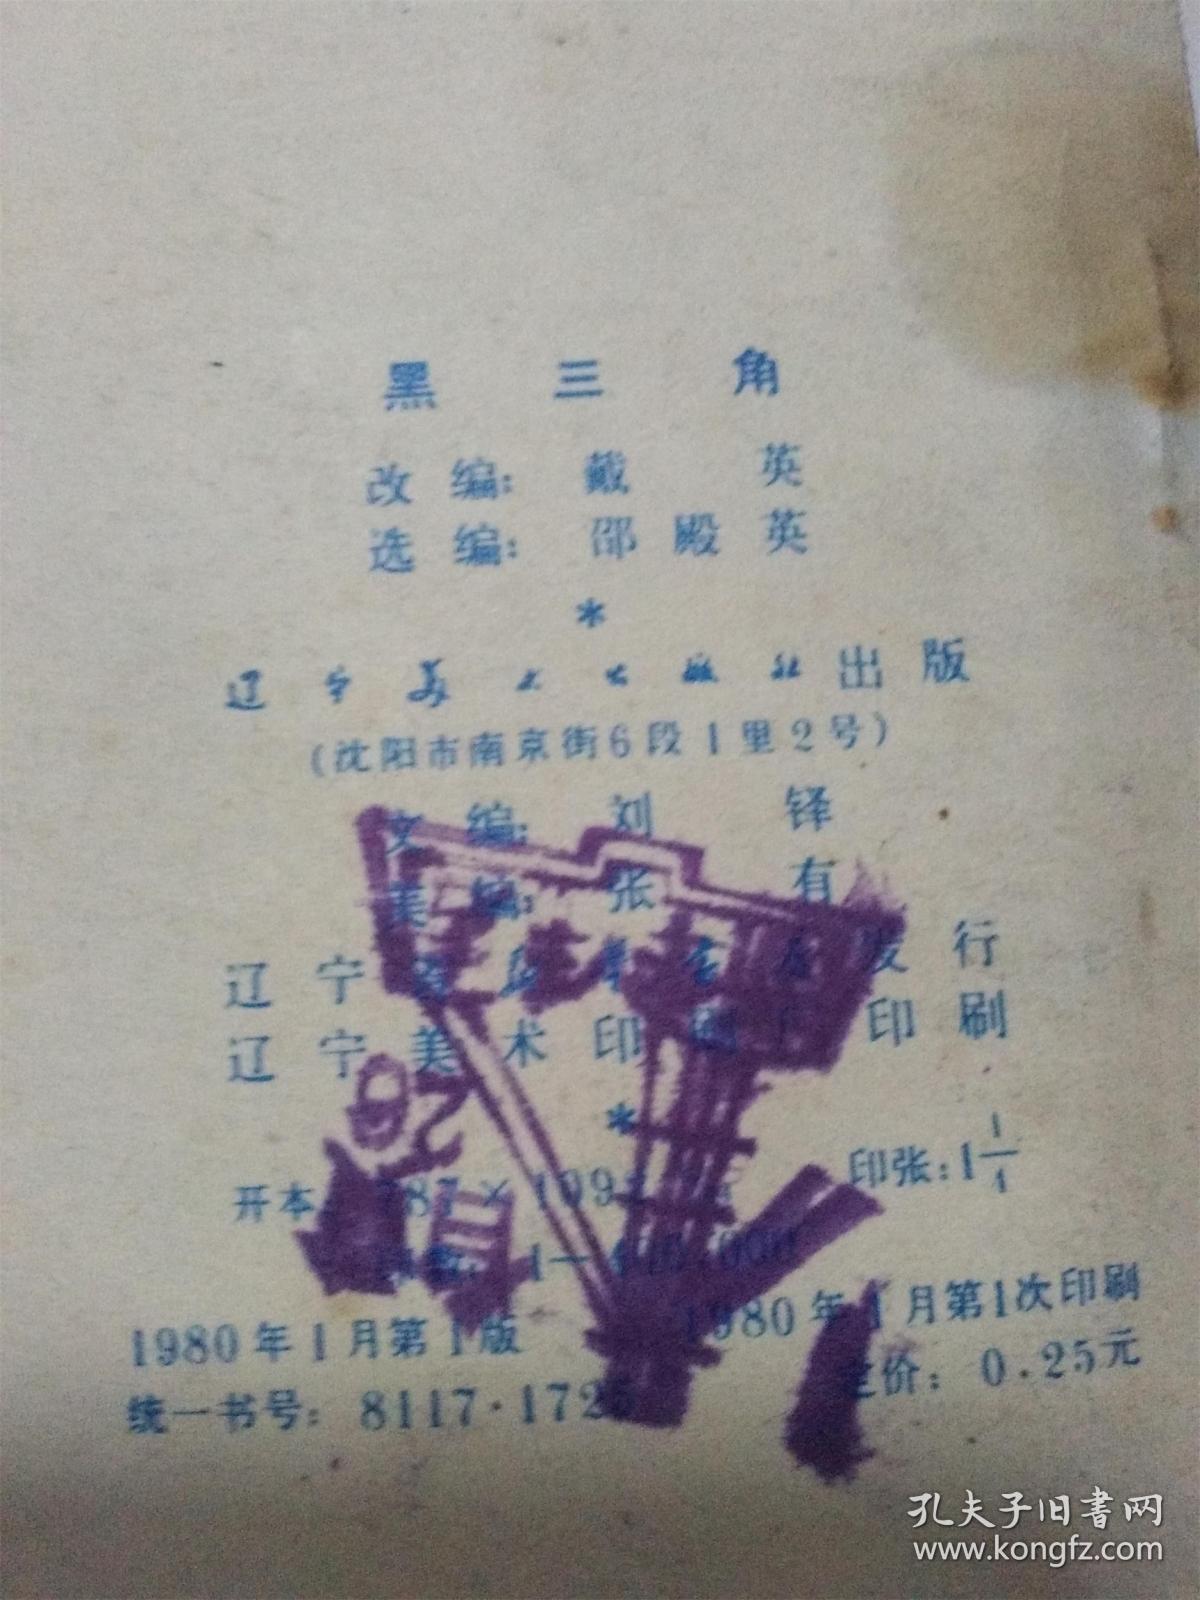 黑三角
改编：戴英
选编：邵殿英
*
辽宁美术出版社出版
(沈阳市南京街6段1里2号)
文编：刘铎
美编：张有
辽宁省新华书店发行
辽宁美术印刷厂印刷
*
开本 787×109 印张：1 1/4
1— 000
1980年1月第1版 1980年1月第1次印刷
统一书号：8117·1725 定价：0.25元
孔夫子旧书网
www.kongfz.com